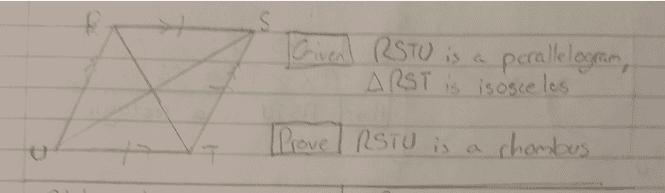 R S
Given RSTU is a parallelogram,
△RST is isosceles
U T
Prove RSTU is a rhombus